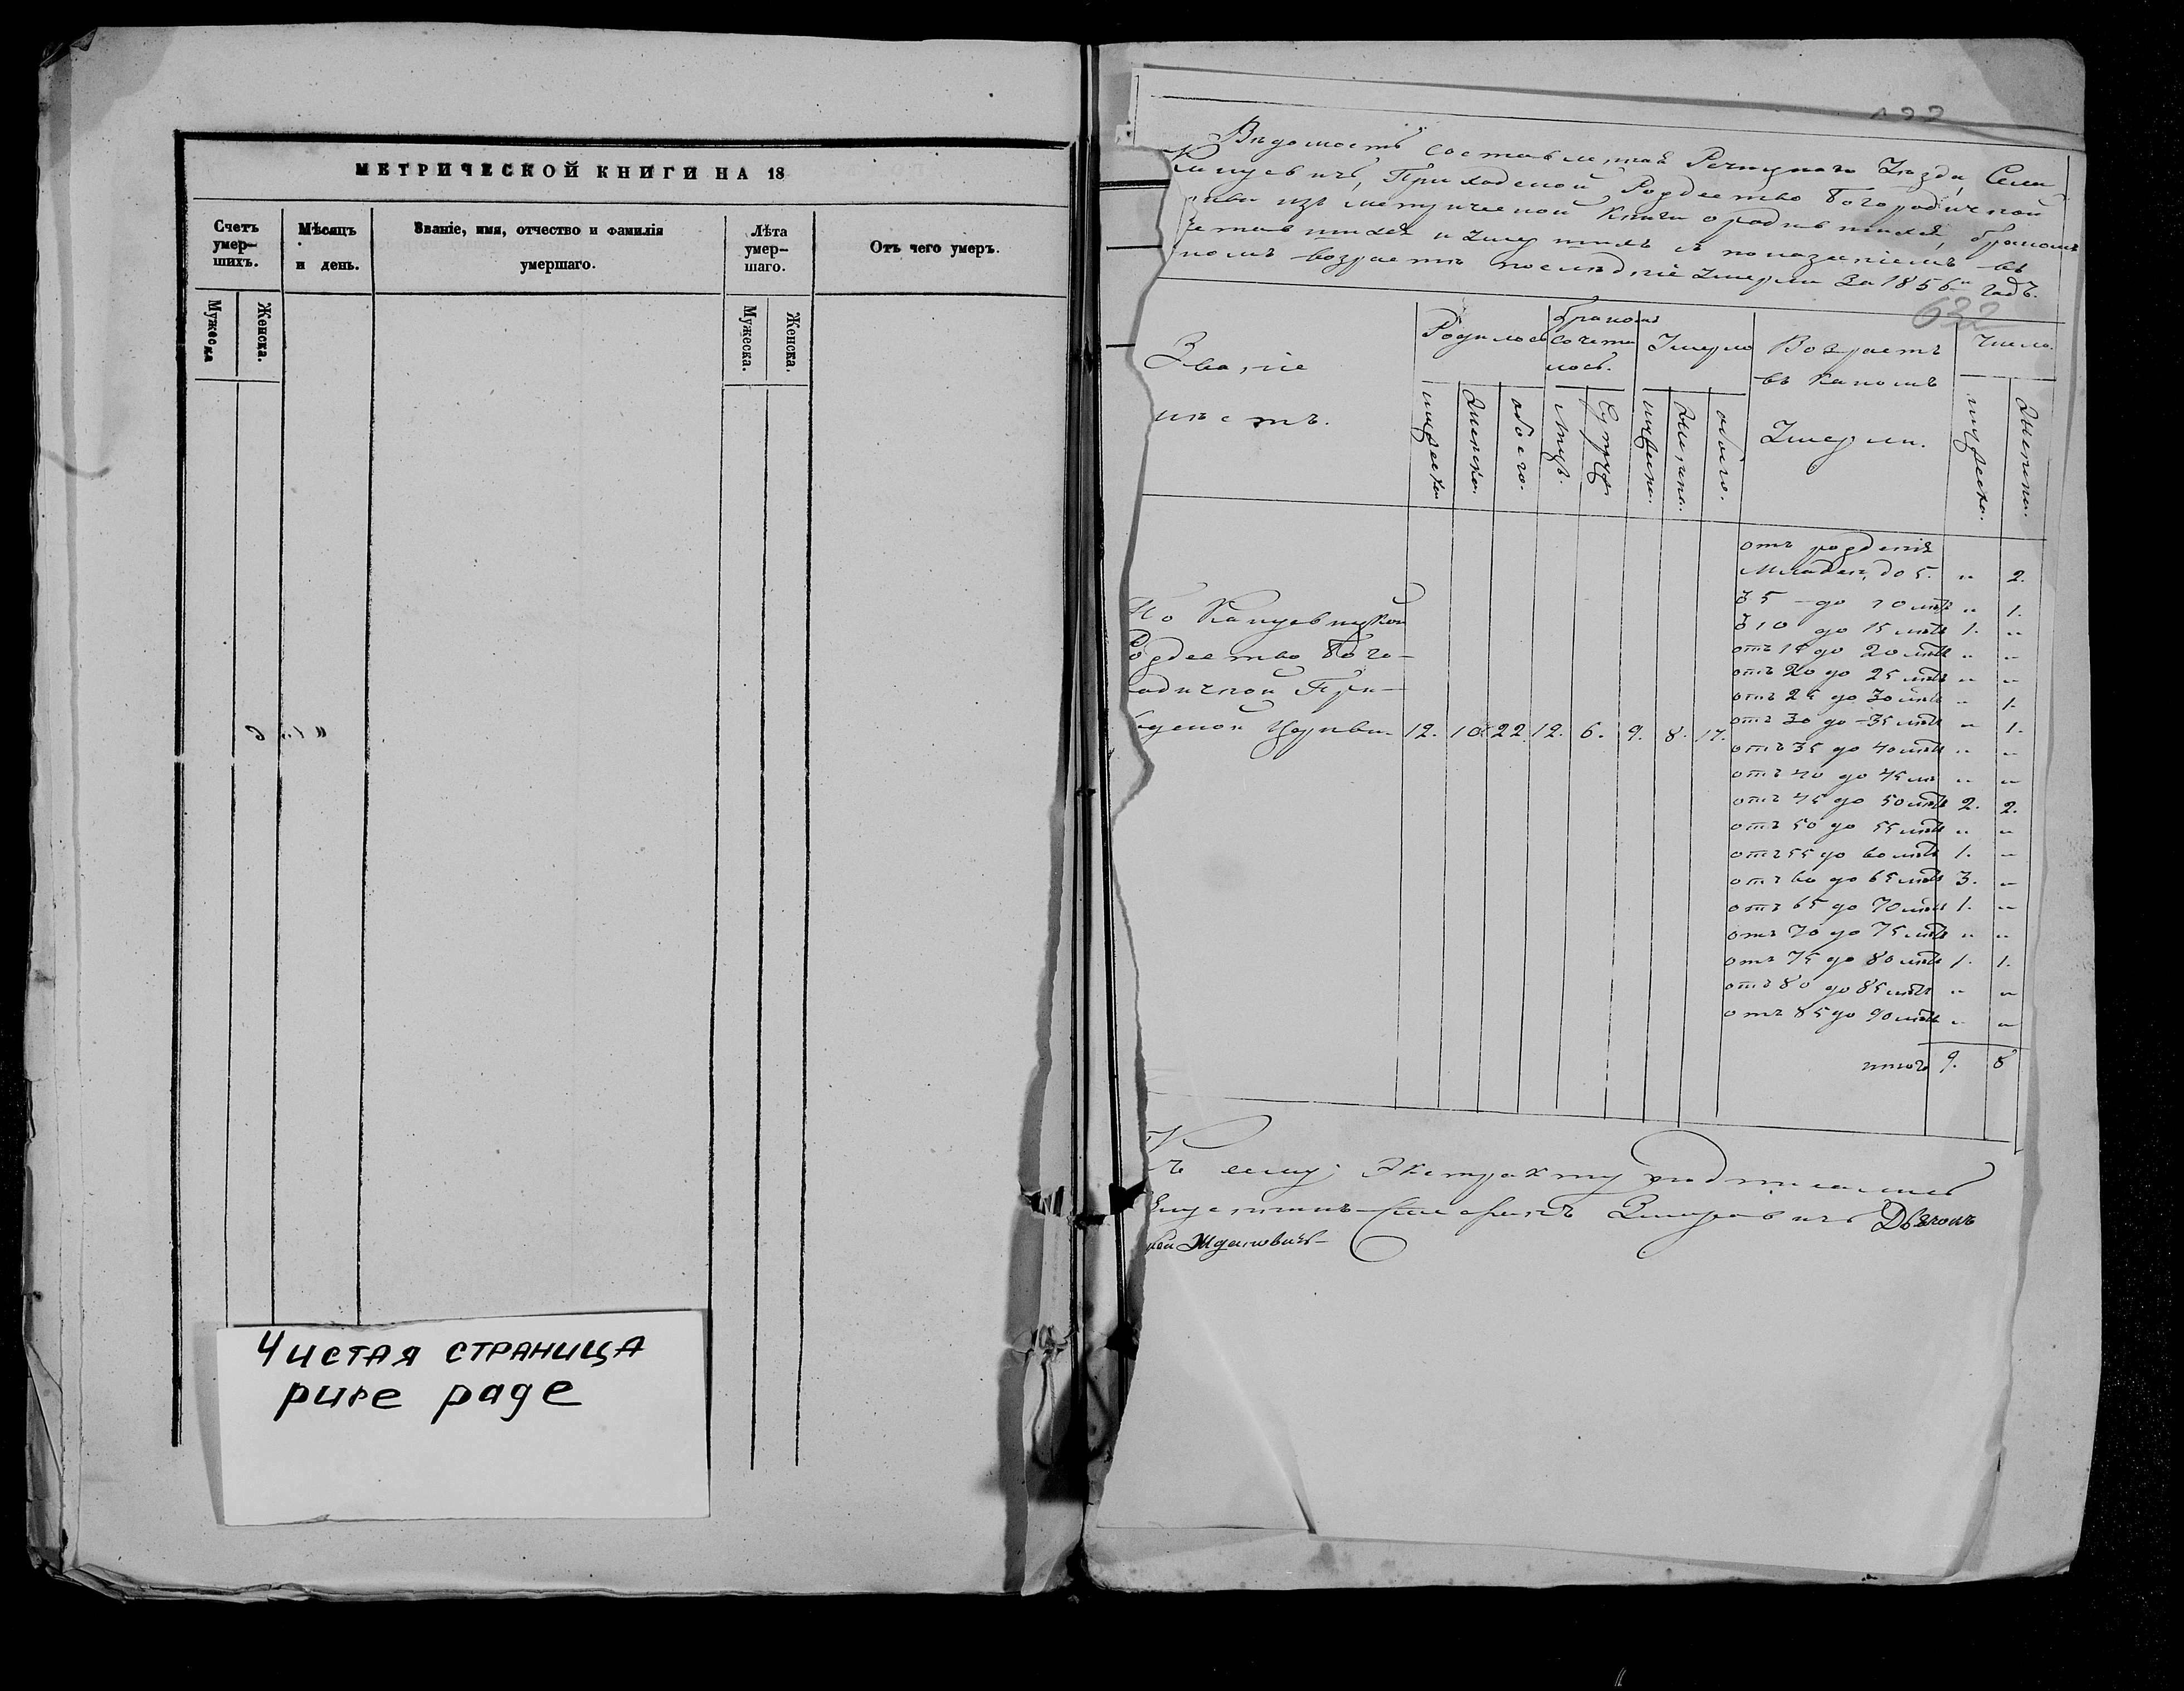 МЕТРИЧЕСКОЙ КНИГИ НА 18
Счетъ умер- шихъ.
Мѣсяцъ и день.
Званіе, имя, отчество и фамилія умершаго.
Лѣта умер- шаго.
Отъ чего умеръ.
Мужеска
Женска.
Мужеска.
Женска.
Чистая страница
pure page
Вѣдомость составленная Речицкаго Уѣзда, Села
Приходской Рождество Богородичной
изъ метрической Книги о родившихся, бракомъ
и умершихъ съ показаніемъ въ
возрастѣ послѣдніе Умерли За 1856й годъ.
632
Званіе
мѣстъ.
Родилось
бракомъ сочета лось.
Умерло
Возрастъ
въ каномъ
Умерли.
Число.
мужеска
Женска.
обоего.
мужеска.
Женска.
обоего.
мужеска.
Женска.
отъ рожденія
Младен. до 5. „ 2.
5 до 10 лѣтъ „ 1.
10 до 15 лѣтъ 1. „
отъ 15 до 20 лѣтъ „ „
отъ 20 до 25 лѣтъ „ „
отъ 25 до 30 лѣтъ „ 1.
отъ 30 до 35 лѣтъ „ 1.
отъ 35 до 40 лѣтъ „ „
отъ 40 до 45 лѣ „ „
отъ 45 до 50 лѣтъ 2. 2.
отъ 50 до 55 лѣтъ „ „
отъ 55 до 60 лѣтъ 1. „
отъ 60 до 65 лѣтъ 3. „
отъ 65 до 70 лѣтъ 1. „
отъ 70 до 75 лѣтъ „ „
отъ 75 до 80 лѣтъ 1. 1.
отъ 80 до 85 лѣтъ „ „
отъ 85 до 90 лѣтъ „ „
итого 9. 8
По Капцевицкой
ождество Бого-
одичной При-
Церкви 12. 10. 22. 12. 6. 9. 8. 17.
ъ сему Экстракту подписались
Дьячокъ
Ждановичъ